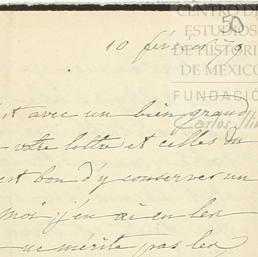 CENTRO DE
ESTUDIOS
DE HISTORIA
DE MÉXICO
FUNDACIÓ
50
10 février 70
avec un bien grand
Carlos Sli
votre lettre et celles du
est bon d'y conserver un
moi j'en ai eu les
ne mérite pas les